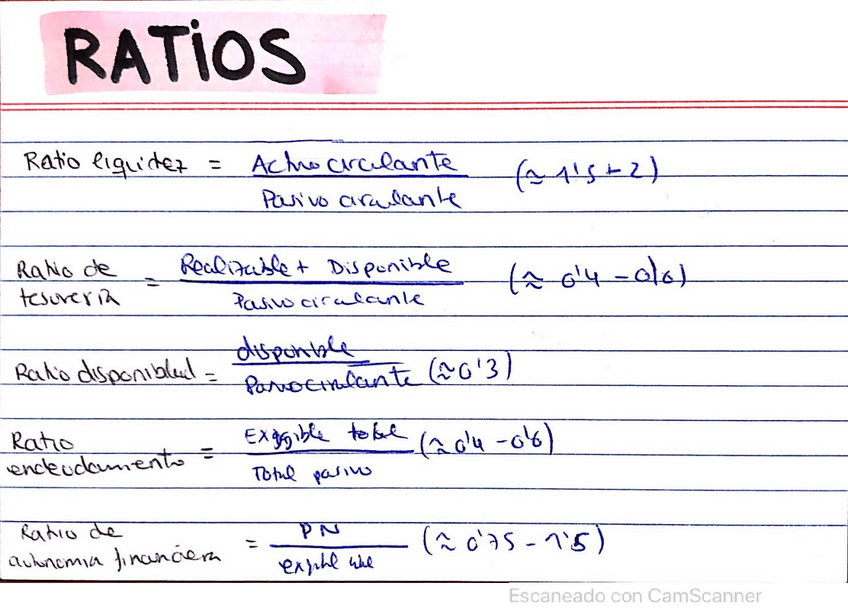 RATIOS
Ratio liquidez = Activo circulante / Pasivo circulante (≈ 1'5 + 2)
Ratio de tesorería = Realizable + Disponible / Pasivo circulante (≈ 0'4 - 0'6)
Ratio disponibilidad = disponible / Pasivo circulante (≈ 0'3)
Ratio endeudamiento = Exigible total / Total pasivo (≈ 0'4 - 0'6)
Ratio de autonomía financiera = PN / (≈ 0'75 - 1'5)
Escaneado con CamScanner